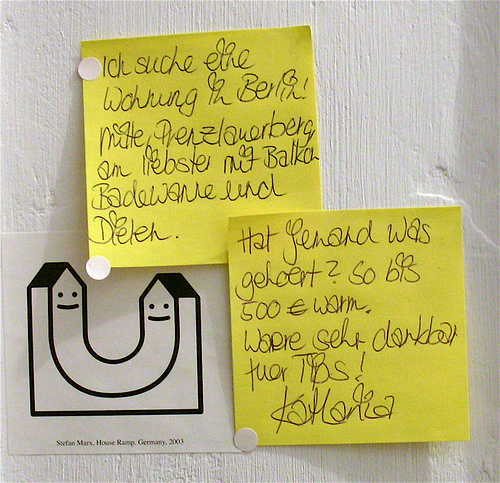 Ich suche eine
Wohnung in Berlin!
Mitte, Prenzlauerberg
am liebsten mit Balkon
Badewanne und
Dielen.
Hat Jemand was
gehoert? So bis
500 € warm.
Waere sehr dankbar
fuer Tips!
Katharia
Stefan Marx, House Ramp. Germany, 2003